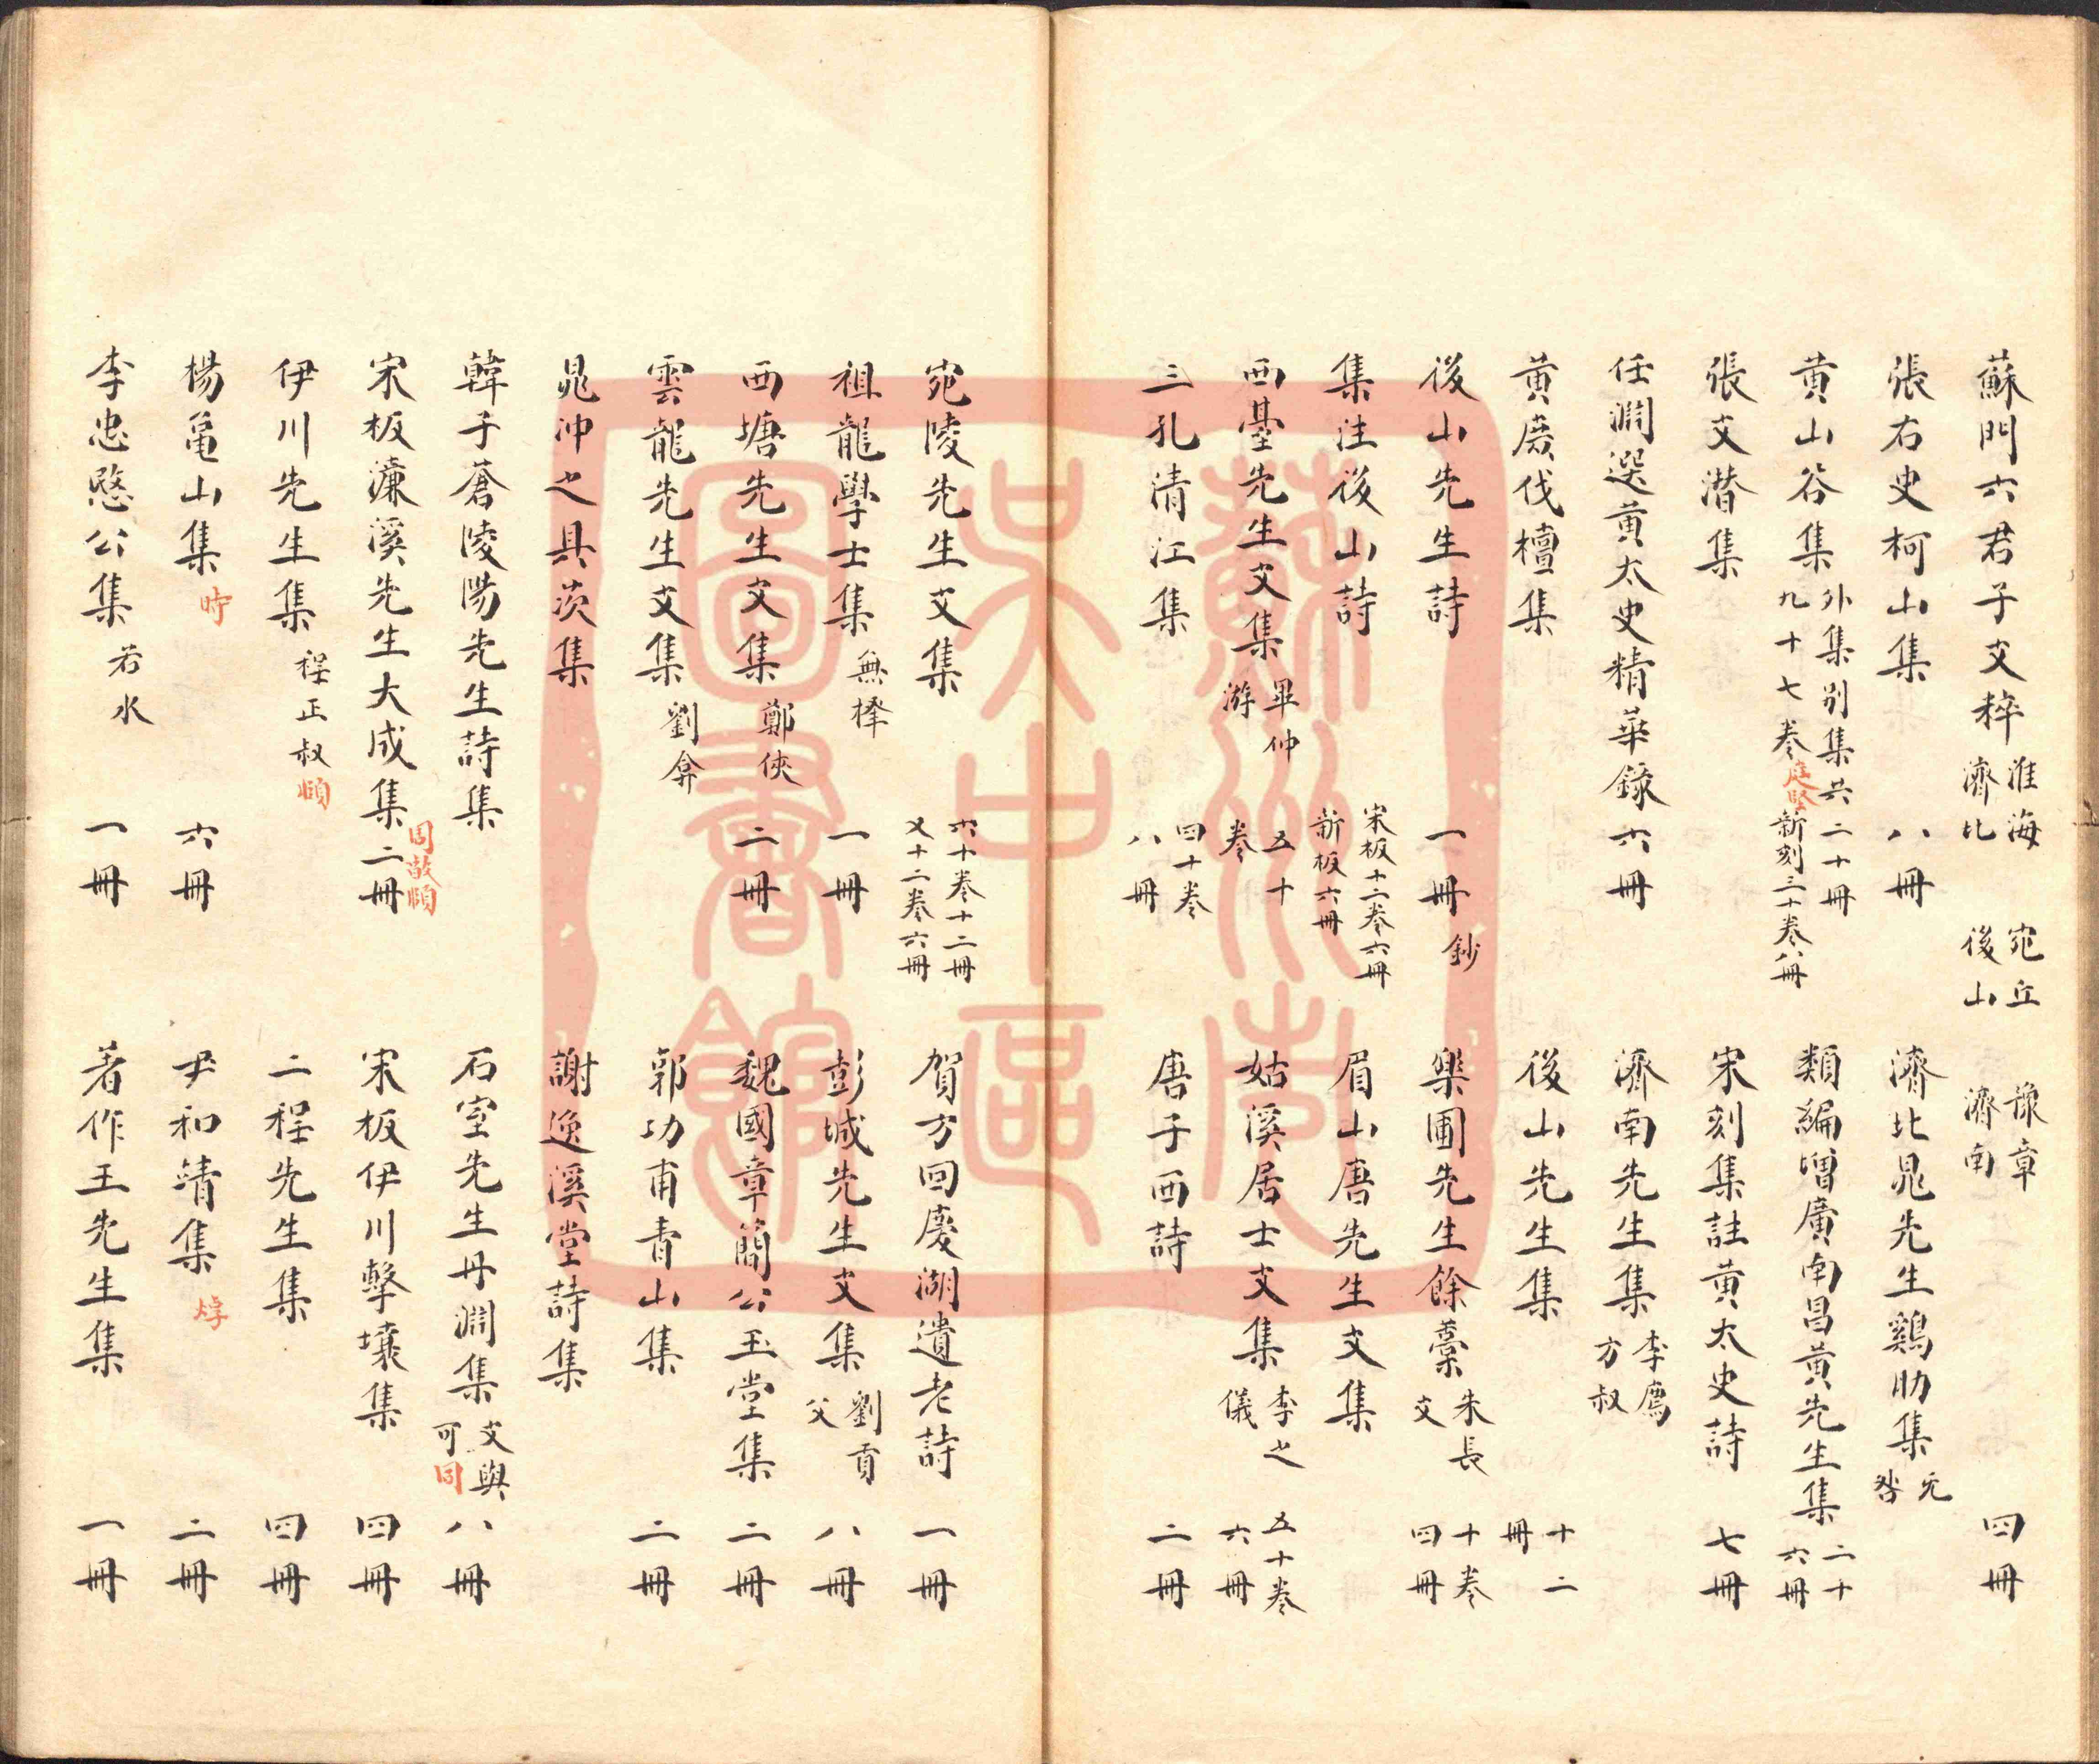 蘇門六君子文粹 淮海 濟北 宛丘 後山 豫章 濟南 四冊
張右史柯山集 八冊 濟北晁先生鷄肋集 无咎
黃山谷集 外集別集共二十冊 九十七卷 庭堅 新刻三十卷八冊 類編增廣南昌黃先生集 二十六冊
張文潛集 宋刻集註黃太史詩 七冊
任淵選黃太史精華錄 六冊 濟南先生集 李廌方叔
黃庶伐檀集 後山先生集 十二冊
後山先生詩 一冊 鈔 樂圃先生餘藁 朱長文 十卷四冊
集注後山詩 宋板十二卷六冊 新板六冊 眉山唐先生文集
西臺先生文集 畢仲游 五十卷 姑溪居士文集 李之儀 五十卷六冊
三孔清江集 四十卷八冊 唐子西詩 二冊
宛陵先生文集 六十卷十二冊 又十二卷六冊 賀方回慶湖遺老詩 一冊
祖龍學士集 無擇 一冊 彭城先生文集 劉貢父 八冊
西塘先生文集 鄭俠 二冊 魏國章簡公玉堂集 二冊
雲龍先生文集 劉弇 郭功甫青山集 二冊
晁沖之具茨集 謝逸溪堂詩集
韓子蒼陵陽先生詩集 石室先生丹淵集 文與可 同 八冊
宋板濂溪先生大成集 二冊 周敦頤 宋板伊川擊壤集 四冊
伊川先生集 程正叔 頤 二程先生集 四冊
楊龜山集 時 六冊 尹和靖集 焞 二冊
李忠愍公集 若水 一冊 著作王先生集 一冊
蘇州市
吴中區
圖書館